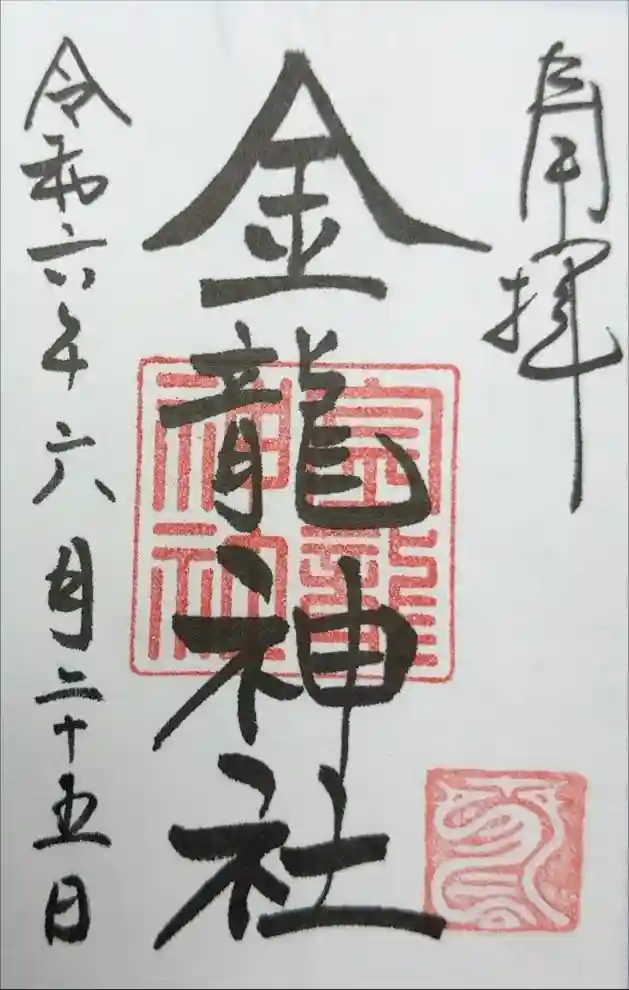 奉拝
金龍神社
金龍神社
令和六年六月二十五日